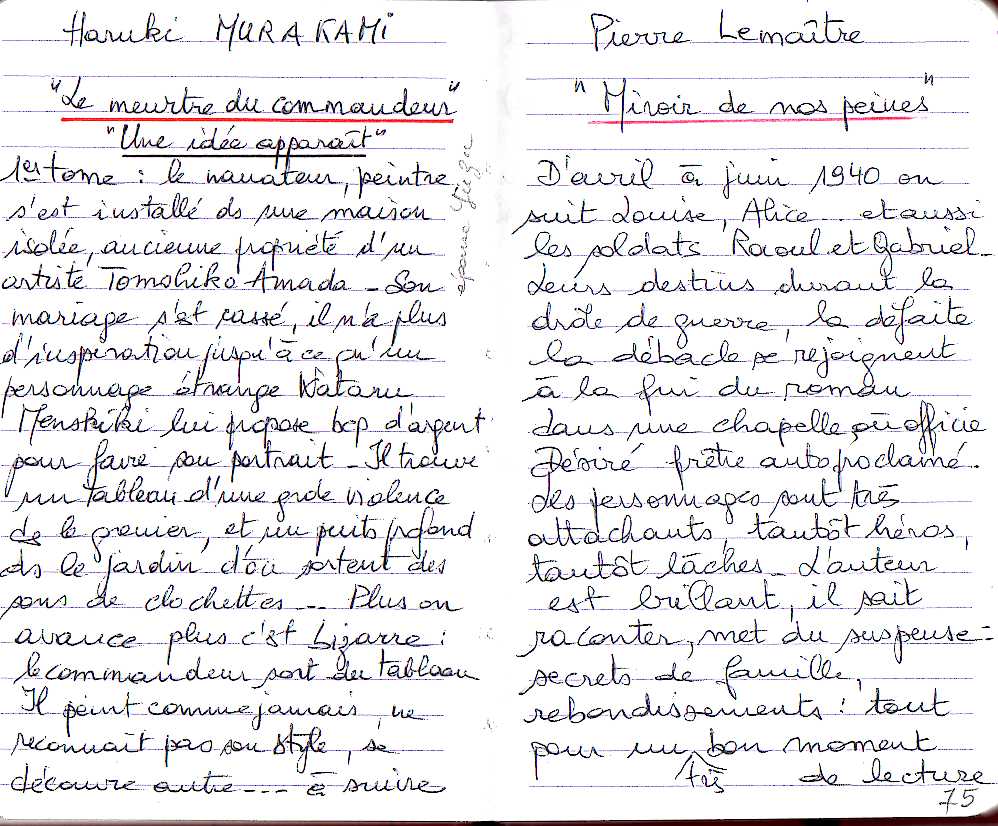 Haruki MURAKAMI
"Le meurtre du commandeur"
"Une idée apparaît"
1er tome : le narrateur, peintre
s'est installé ds une maison
isolée, ancienne propriété d'un
artiste Tomohiko Amada - Son
mariage s'est cassé, il n'a plus
d'inspiration jusqu'à ce qu'un
personnage étrange Wataru
Menshiki lui propose bcp d'argent
pour faire son portrait - Il trouve
un tableau d'une grde violence
ds le grenier, et un puits profond
ds le jardin d'où sortent des
sons de clochettes... Plus on
avance plus c'est bizarre :
le commandeur sort du tableau
Il peint comme jamais, ne
reconnait pas son style, se
découvre autre --- à suivre
épouse Yuzu
Pierre Lemaître
"Miroir de nos peines"
D'avril à juin 1940 on
suit Louise, Alice... et aussi
les soldats Raoul et Gabriel -
Leurs destins durant la
drôle de guerre, la défaite
la débacle se rejoignent
à la fin du roman
dans une chapelle, où officie
Désiré prêtre autoproclamé -
Les personnages sont très
attachants, tantôt héros,
tantôt lâches - L'auteur
est brillant, il sait
raconter, met du suspense -
secrets de famille,
rebondissements : tout
pour un très bon moment
de lecture
75